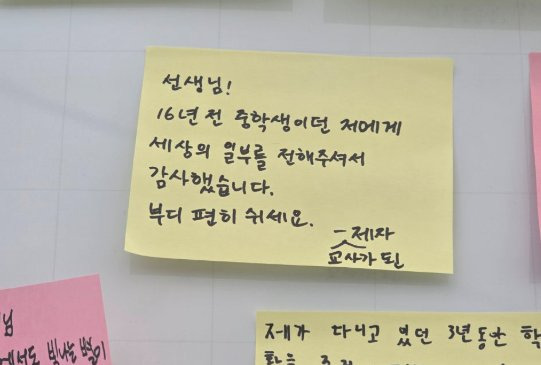 선생님!
16년 전 중학생이던 저에게
세상의 일부를 전해주셔서
감사했습니다.
부디 편히 쉬세요.
-제자
교사가 된
님
빛나는 별이
제가 다니고 있던 3년동안 학